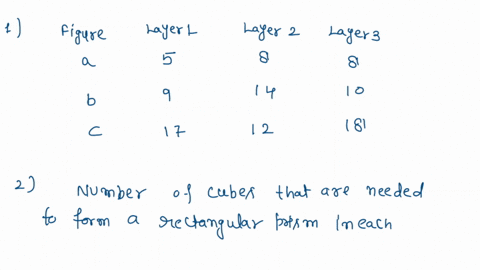 1) Figure Layer 1 Layer 2 Layer 3
a 5 8 8
b 9 14 10
c 17 12 181
2) Number of cubes that are needed
to form a rectangular prism in each